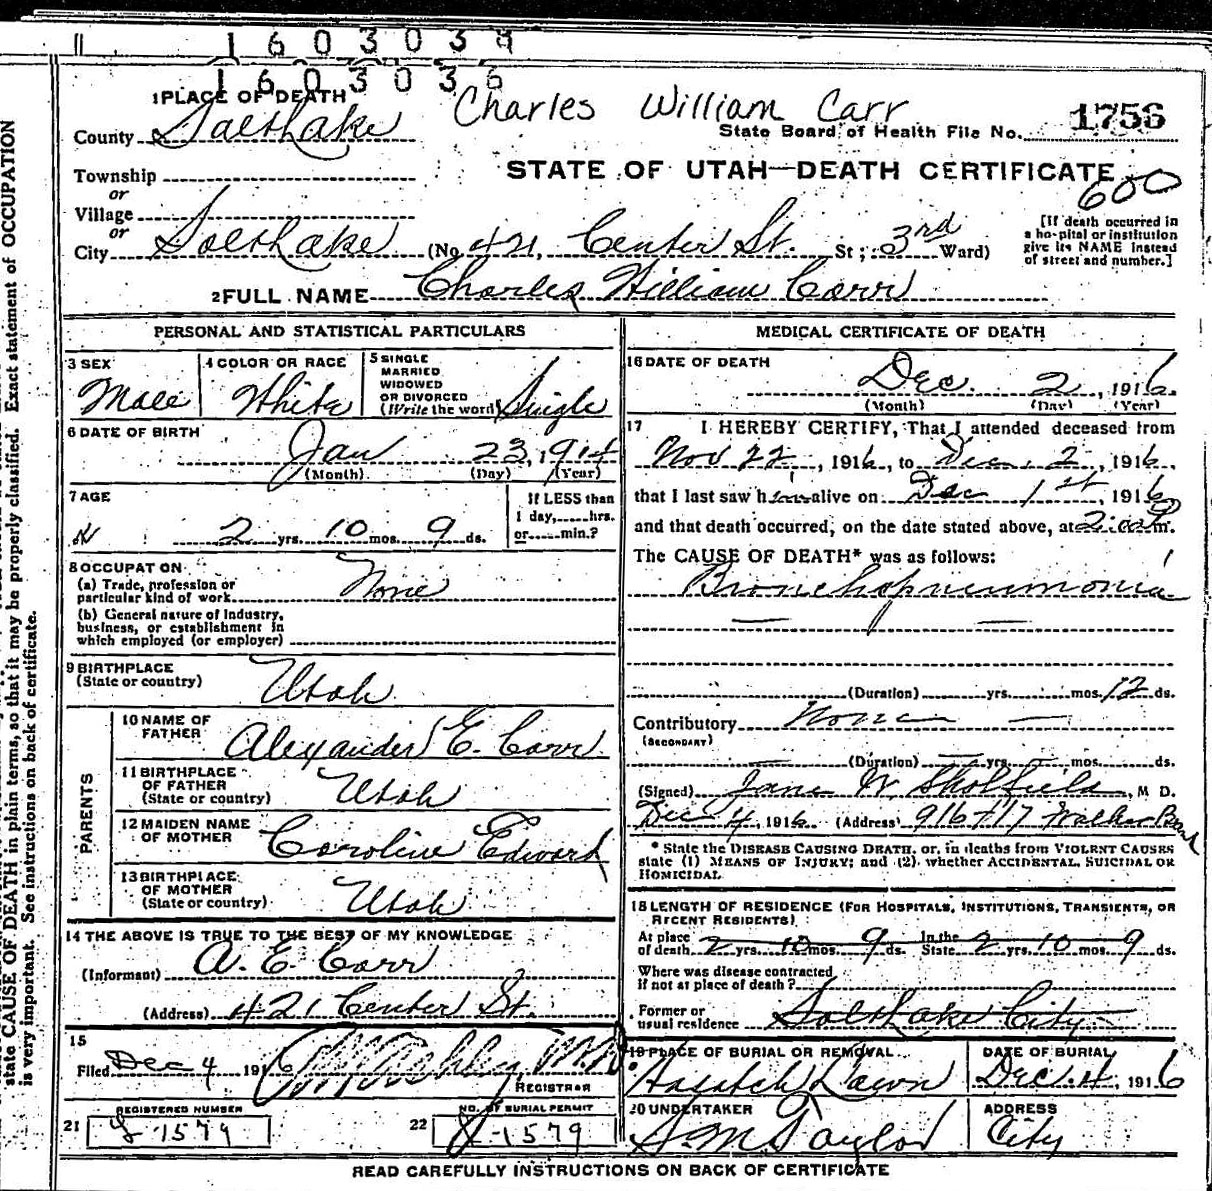 1603038
1603036
1 PLACE OF DEATH Charles William Carr
County Salt Lake State Board of Health File No. 1756
STATE OF UTAH—DEATH CERTIFICATE
600
Township
or
Village
or
City Salt Lake (No. 421, Center St. St.; 3rd Ward)
[If death occurred in a hospital or institution give its NAME instead of street and number.]
2 FULL NAME Charles William Carr
PERSONAL AND STATISTICAL PARTICULARS
3 SEX Male
4 COLOR OR RACE White
5 SINGLE MARRIED WIDOWED OR DIVORCED (Write the word) Single
6 DATE OF BIRTH Jan 23, 1914
(Month) (Day) (Year)
7 AGE 2 yrs. 10 mos. 9 ds.
If LESS than 1 day,.....hrs. or.....min.?
8 OCCUPATION
(a) Trade, profession or particular kind of work None
(b) General nature of industry, business, or establishment in which employed (or employer)
9 BIRTHPLACE (State or country) Utah
PARENTS
10 NAME OF FATHER Alexander E. Carr
11 BIRTHPLACE OF FATHER (State or country) Utah
12 MAIDEN NAME OF MOTHER Caroline Edward
13 BIRTHPLACE OF MOTHER (State or country) Utah
14 THE ABOVE IS TRUE TO THE BEST OF MY KNOWLEDGE
(Informant) A. E. Carr
(Address) 421 Center St.
15
Filed Dec 4 1916
REGISTRAR
21 REGISTERED NUMBER 1579
22 NO. OF BURIAL PERMIT 1579
MEDICAL CERTIFICATE OF DEATH
16 DATE OF DEATH
Dec. 2, 1916.
(Month) (Day) (Year)
17 I HEREBY CERTIFY, That I attended deceased from
Nov 22, 1916, to Dec. 2, 1916,
that I last saw him alive on Dec 1st, 1916
and that death occurred, on the date stated above, at m.
The CAUSE OF DEATH* was as follows:
Bronchopneumonia
(Duration) yrs. mos. 12 ds.
Contributory None
(SECONDARY)
(Duration) yrs. mos. ds.
(Signed) Jane W. Skolfield, M D.
Dec 4, 1916 (Address) 916+17 Walker Bank
* State the DISEASE CAUSING DEATH, or, in deaths from VIOLENT CAUSES
state (1) MEANS OF INJURY; and (2) whether ACCIDENTAL, SUICIDAL OR
HOMICIDAL
18 LENGTH OF RESIDENCE (FOR HOSPITALS, INSTITUTIONS, TRANSIENTS, OR
RECENT RESIDENTS)
At place of death 2 yrs. 10 mos. 9 ds. In the State 2 yrs. 10 mos. 9 ds.
Where was disease contracted
if not at place of death?
Former or usual residence Salt Lake City
19 PLACE OF BURIAL OR REMOVAL Wasatch Lawn
DATE OF BURIAL Dec. 4, 1916
20 UNDERTAKER S. M. Taylor
ADDRESS City
READ CAREFULLY INSTRUCTIONS ON BACK OF CERTIFICATE
state CAUSE OF DEATH in plain terms, so that it may be properly classified. Exact statement of OCCUPATION
is very important. See instructions on back of certificate.